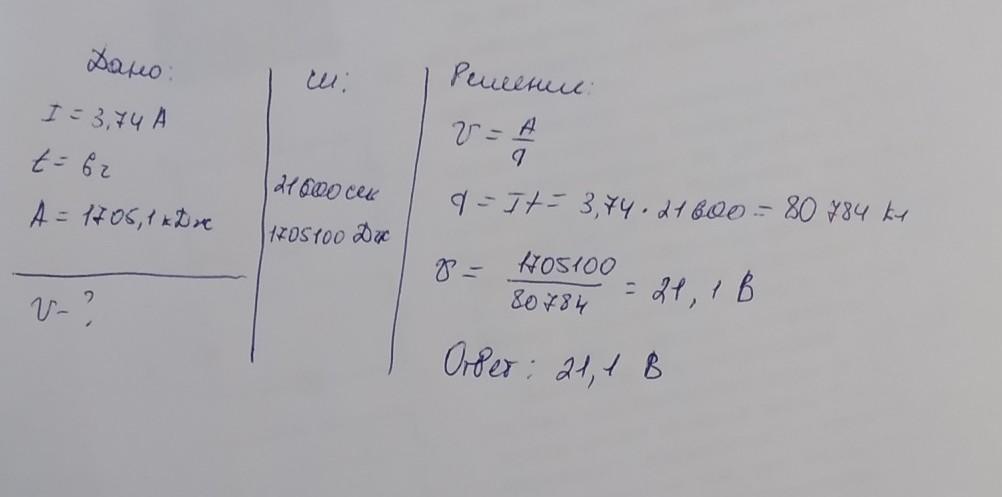 Дано:
I = 3,74 А
t = 6 г
A = 1705,1 кДж
U - ?
си:
21600 сек
1705100 Дж
Решение:
U = A/q
q = It = 3,74 · 21600 = 80784 Кл
U = 1705100/80784 = 21,1 В
Ответ: 21,1 В